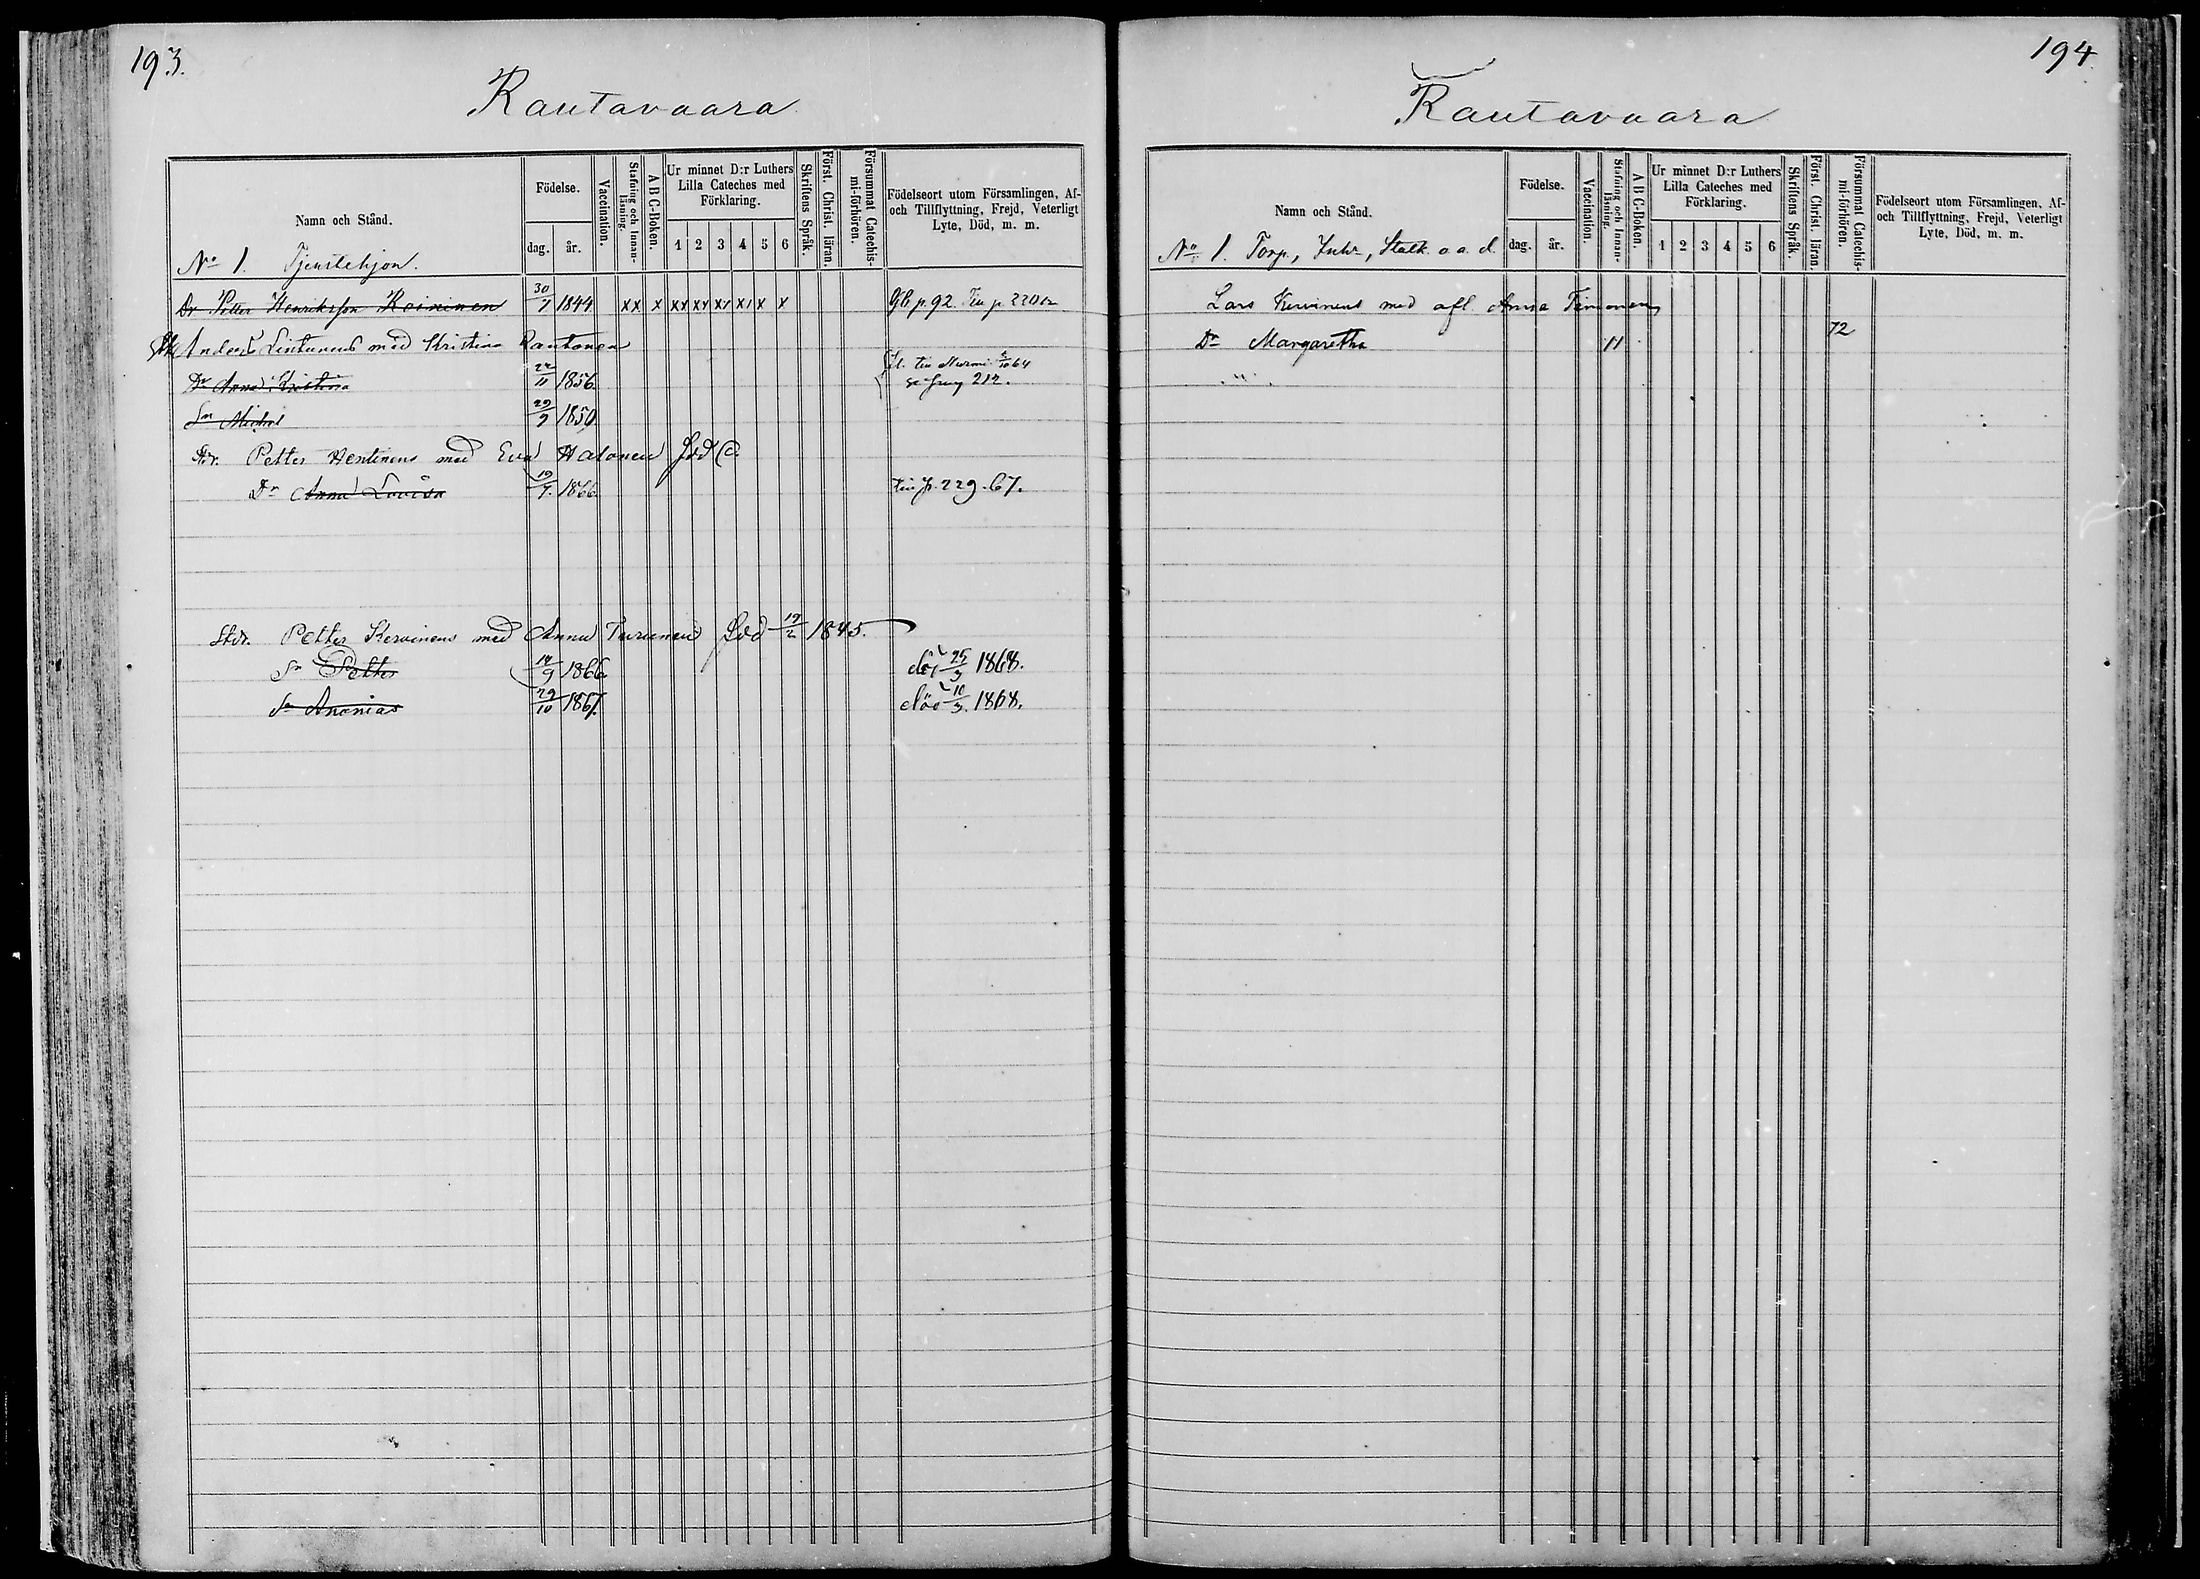 193.
Rautavaara
Namn och Stånd.
Födelse.
dag. år.
Vaccination.
Stafning och Innan-läsning.
A B C-Boken.
Ur minnet D:r Luthers Lilla Cateches med Förklaring.
1 2 3 4 5 6
Skriftens Språk.
Först. Christ. läran.
Försummat Catechis-mi-förhören.
Födelseort utom Församlingen, Af- och Tillflyttning, Frejd, Veterligt Lyte, Död, m. m.
No 1. Tjenstehjon.
Dr Petter Henriksson Koininen 30/7 1844 xx x xx xx xx x x Gb p. 92.
Anders Lintunens med Kristina Rautonen
Dr Anna Kristina 22/11 1856 212.
Sn Michel 29/9 1850
Petter Hentinens med Eva Halonen
Dr Anna Lovisa 19/7. 1866 p. 229. 67.
Stdr. Petter Kervinens med Anna Turunen 19/2 1845.
Sn Petter 14/9 1866 död 25/3 1868.
Sn Ananias 29/10 1867. död 10/3. 1868.
194.
Rautavaara
Namn och Stånd.
Födelse.
dag. år.
Vaccination.
Stafning och Innan-läsning.
A B C-Boken.
Ur minnet D:r Luthers Lilla Cateches med Förklaring.
1 2 3 4 5 6
Skriftens Språk.
Först. Christ. läran.
Försummat Catechis-mi-förhören.
Födelseort utom Församlingen, Af- och Tillflyttning, Frejd, Veterligt Lyte, Död, m. m.
No 1. Torp., Inhr, Statk. o. a. d.
Lars Kervinens med afl. Anna Timonen
Dr Margaretha 11 72